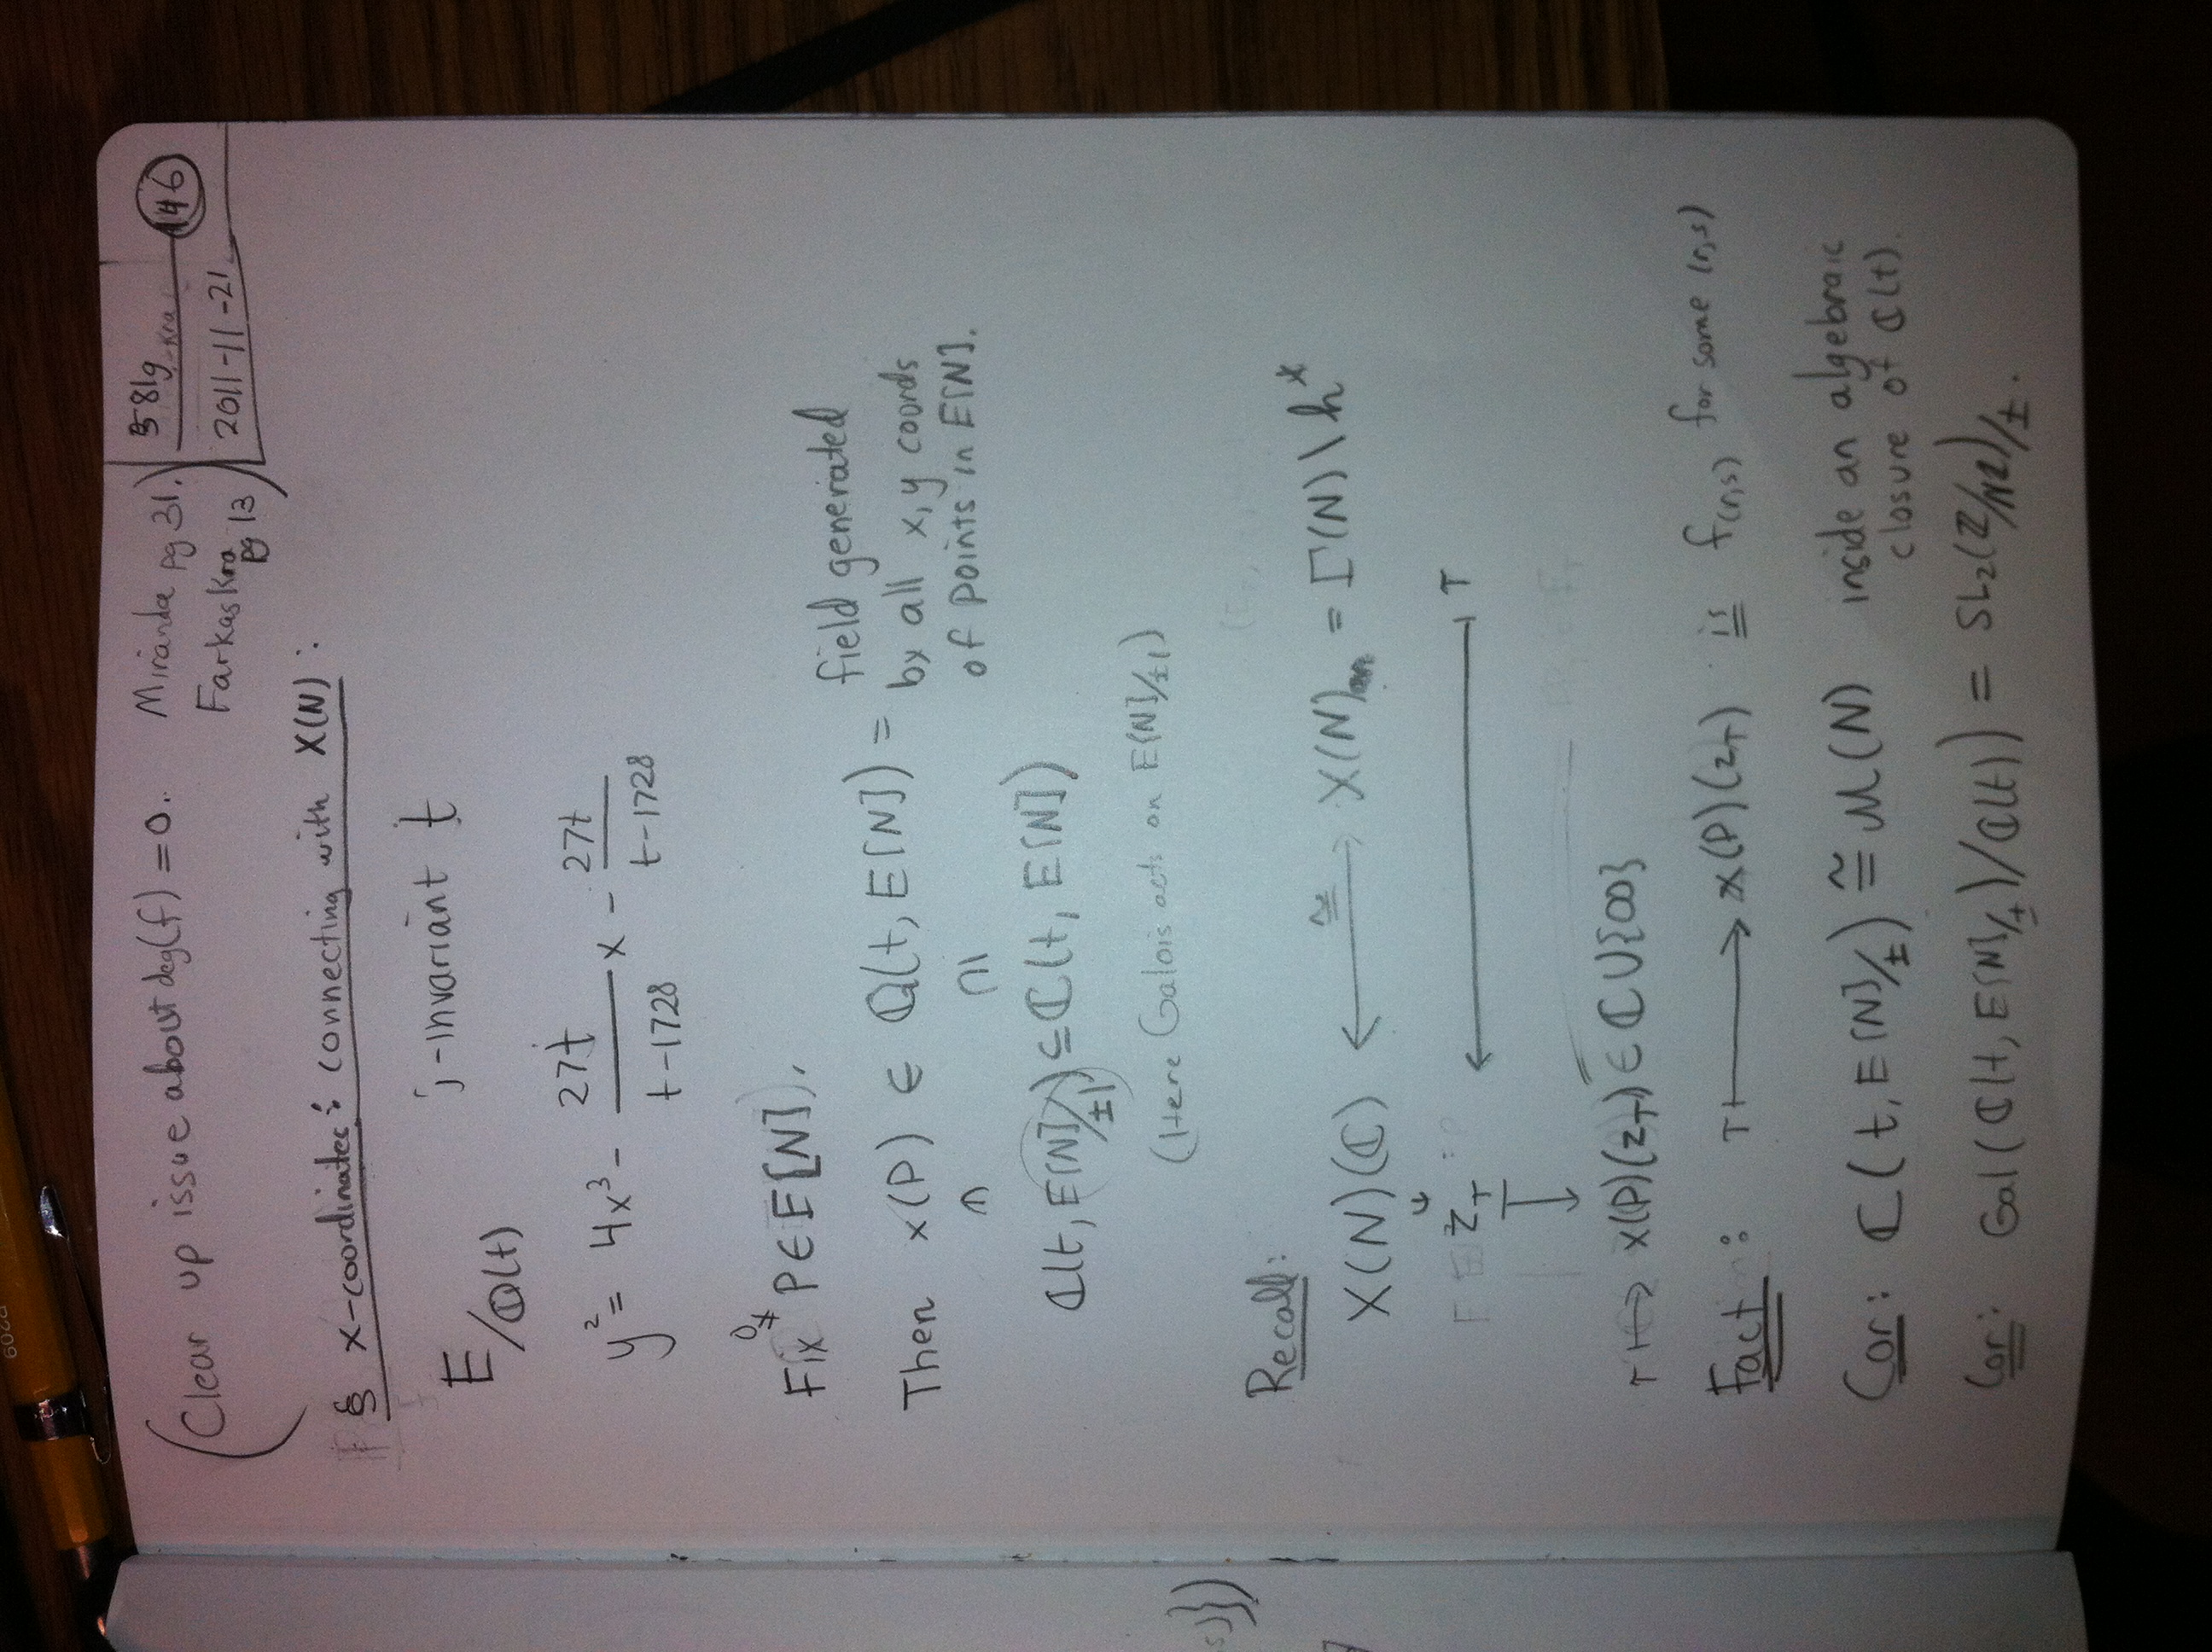 (Clear up issue about deg(f)=0. Miranda pg 31.)
Farkas Kra pg 13)
581g
146
2011-11-21
§ x-coordinates: connecting with X(N):
E/ℚ(t) j-invariant t
y² = 4x³ - 27t/(t-1728) x - 27t/(t-1728)
Fix 0≠ P∈E[N].
Then x(P) ∈ ℚ(t, E[N]) = field generated
by all x, y coords
of points in E[N].
∩ ∩|
ℂ(t, E[N]/±1) ⊆ ℂ(t, E[N])
(Here Galois acts on E[N]/±1)
Recall:
X(N)(ℂ) ⟵≅⟶ X(N)an = Γ(N)\h*
z_τ ⟵ τ
τ ↦ x(P)(z_τ) ∈ ℂ∪{∞}
Fact: τ ⟼ x(P)(z_τ) is f(r,s) for some (r,s)
Cor: ℂ(t, E[N]/±) ≅ M(N) inside an algebraic
closure of ℂ(t).
Cor: Gal(ℂ(t, E[N]/±)/ℂ(t)) = SL₂(ℤ/Nℤ)/±.